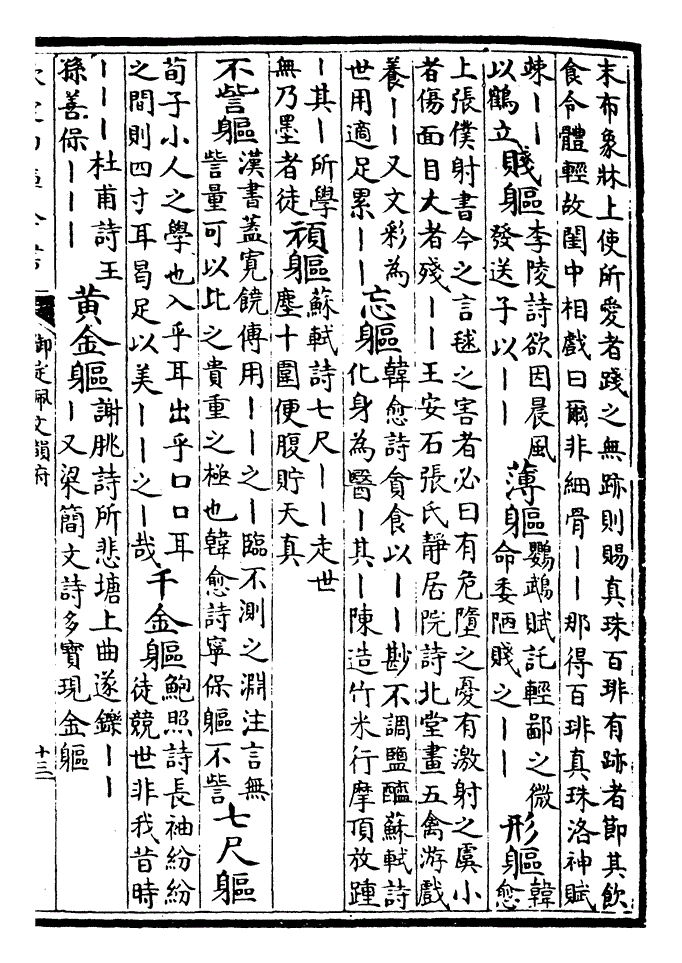 末布象牀上使所愛者踐之無跡則賜真珠百琲有跡者節其飲
食令體輕故閨中相戲曰爾非細骨丨丨那得百琲真珠洛神賦
竦丨丨
以鶴立
賤軀
李陵詩欲因晨風
發送子以丨丨
薄軀
鸚鵡賦託輕鄙之微
命委陋賤之丨丨
形軀
韓
愈
上張僕射書今之言毬之害者必曰有危墮之憂有激射之虞小
者傷面目大者殘丨丨王安石張氏靜居院詩北堂畫五禽游戲
養丨丨又文彩為
世用適足累丨丨
忘軀
韓愈詩貪食以丨丨尠不調鹽醯蘇軾詩
化身為醫丨其丨陳造竹米行摩頂放踵
丨其丨所學
無乃墨者徒
頑軀
蘇軾詩七尺丨丨走世
塵十圍便腹貯天真
不訾軀
漢書蓋寬饒傳用丨丨之丨臨不測之淵注言無
訾量可以比之貴重之極也韓愈詩寧保軀不訾
七尺軀
荀子小人之學也入乎耳出乎口口耳
之間則四寸耳曷足以美丨丨之丨哉
千金軀
鮑照詩長袖紛紛
徒競世非我昔時
丨丨丨杜甫詩王
孫善保丨丨丨
黃金軀
謝朓詩所悲塘上曲遂鑠丨丨
丨又梁簡文詩多寶現金軀
御定佩文韻府
十三